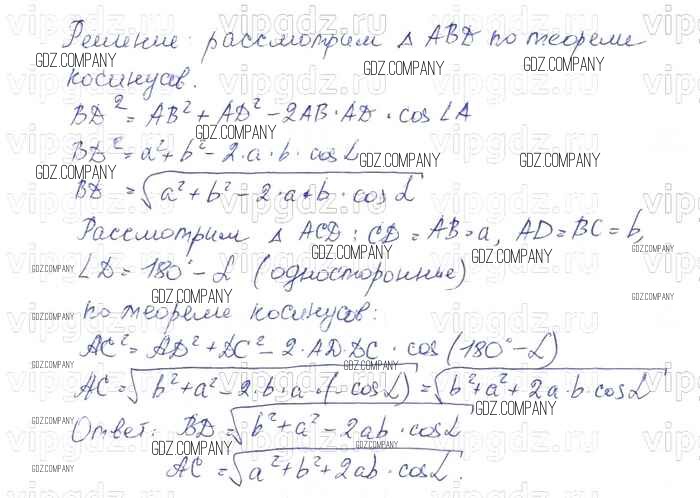 Решение: рассмотрим Δ ABD по теореме
косинусав.
BD² = AB² + AD² - 2AB·AD · cos ∠A
BD² = a² + b² - 2·a·b·cos α
BD = √(a² + b² - 2·a·b·cos α)
Рассмотрим Δ ACD : CD = AB = a, AD = BC = b,
∠D = 180° - α (односторонние)
по теореме косинусов:
AC² = AD² + DC² - 2·AD·DC · cos (180° - α)
AC = √(b² + a² - 2·b·a·(-cos α)) = √(b² + a² + 2a·b·cos α)
Ответ: BD = √(b² + a² - 2ab·cos α)
AC = √(a² + b² + 2ab·cos α).
vipgdz.ru
GDZ.COMPANY